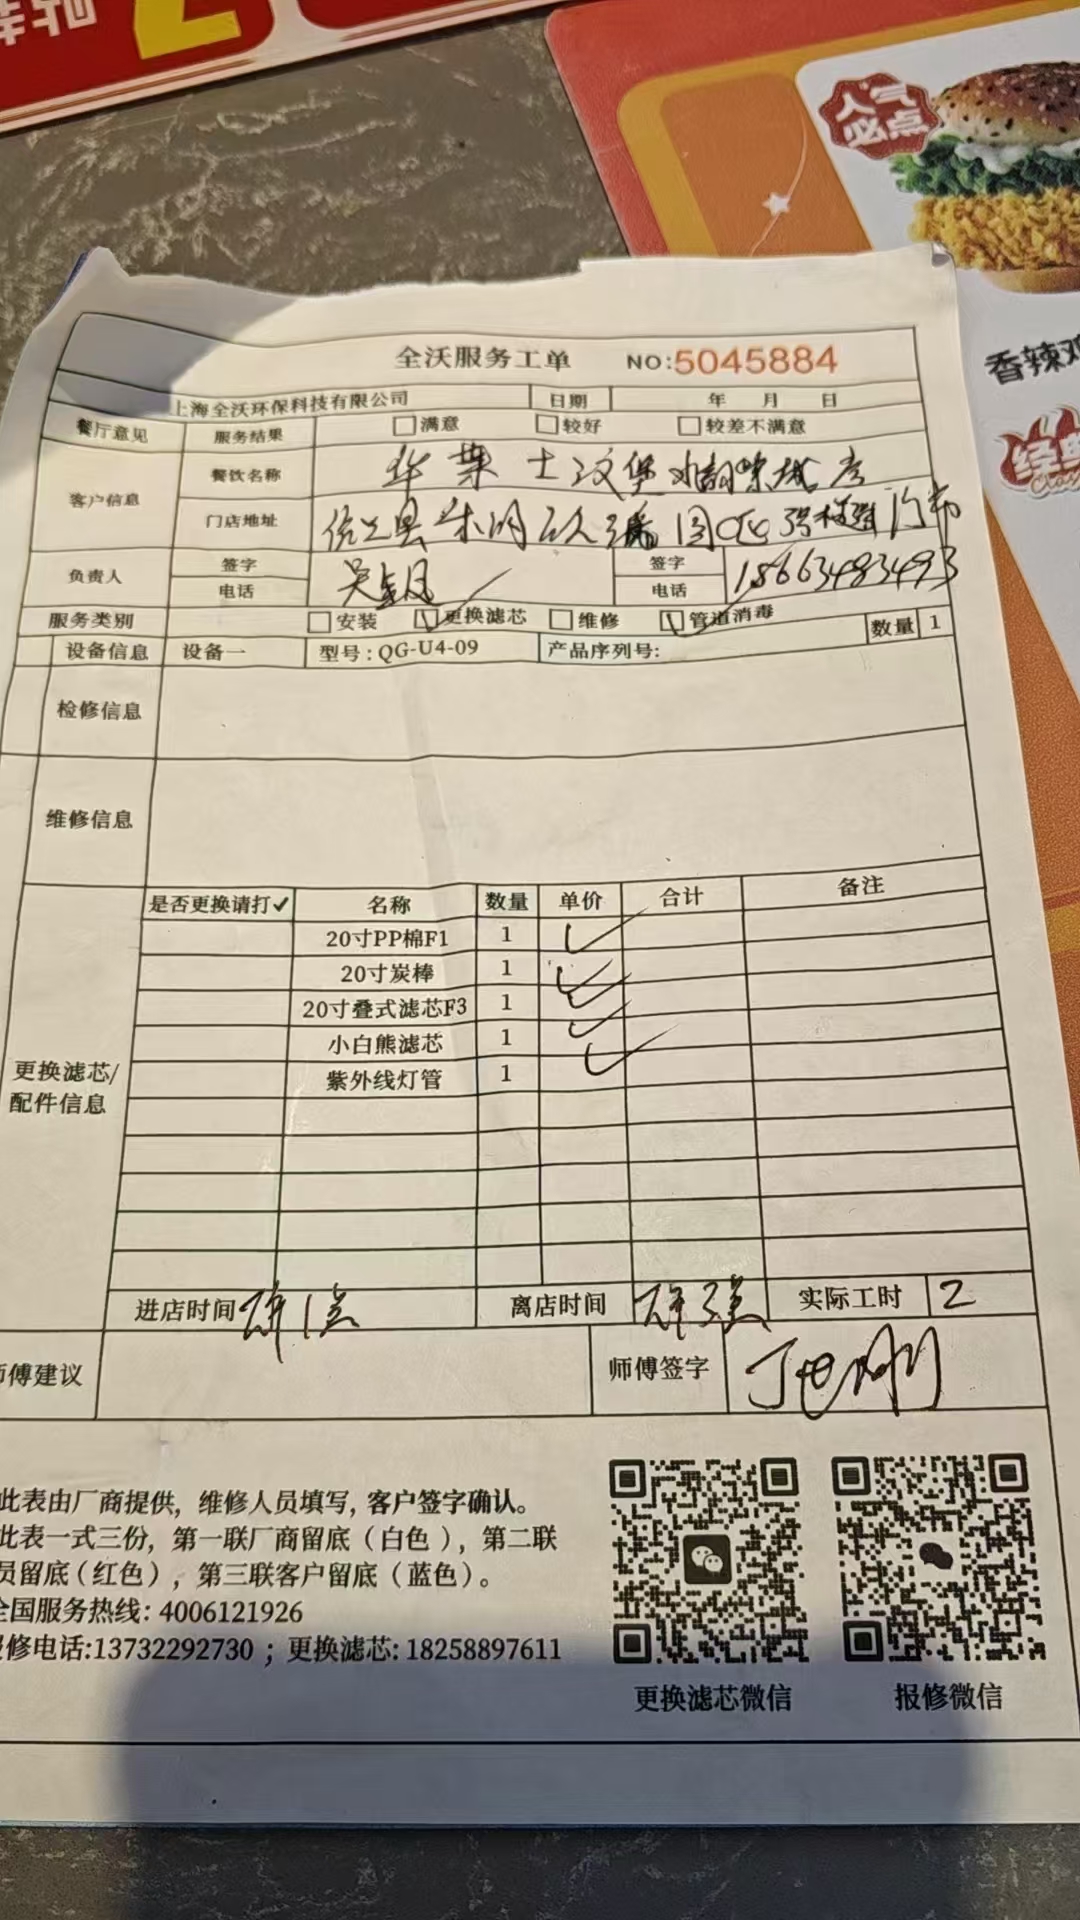 人气
必点
香辣鸡
经典
全沃服务工单 NO:5045884
上海全沃环保科技有限公司 日期 年 月 日
餐厅意见 服务结果 满意 较好 较差不满意
客户信息 餐饮名称 华莱士汉堡
门店地址
负责人 签字 签字
电话 吴 电话 18663483493
服务类别 安装 更换滤芯 维修 管道消毒
设备信息 设备一 型号:QG-U4-09 产品序列号: 数量 1
检修信息
维修信息
是否更换请打✓ 名称 数量 单价 合计 备注
20寸PP棉F1 1 ✓
20寸炭棒 1 ✓
20寸叠式滤芯F3 1 ✓
小白熊滤芯 1 ✓
紫外线灯管 1 ✓
更换滤芯/
配件信息
进店时间 1点 离店时间 3点 实际工时 2
师傅建议 师傅签字
此表由厂商提供, 维修人员填写, 客户签字确认。
此表一式三份, 第一联厂商留底（白色）, 第二联
员留底(红色）, 第三联客户留底（蓝色）。
全国服务热线: 4006121926
修电话:13732292730 ; 更换滤芯: 18258897611
更换滤芯微信 报修微信